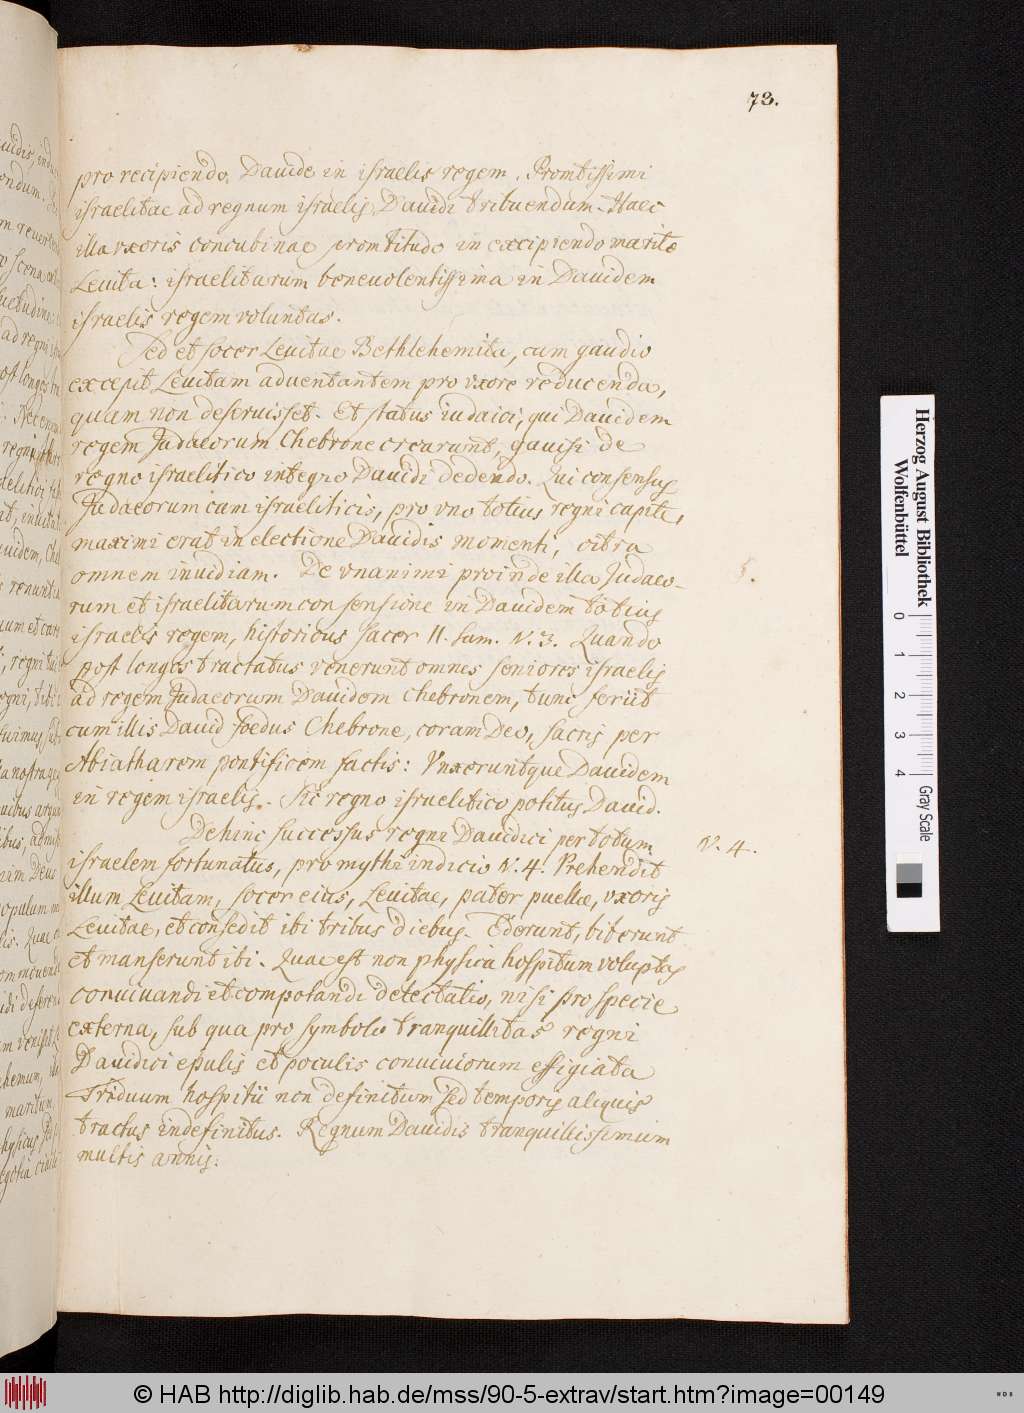 73.
pro recipiendo Davide in israelis regem. Promtissimi
israelitae ad regnum israelis Davidi tribuendum. Haec
illa uxoris concubinae promtitudo in excipiendo marito
Levita: israelitarum benevolentissima in Davidem
israelis regem voluntas.
Sed et socer Levitae Bethlehemita, cum gaudio
excepit Levitam adventantem pro uxore reducenda,
quam non deseruisset. Et status iudaici, qui Davidem
regem Judaeorum Chebrone crearunt, gavisi de
regno israelitico integro Davidi dedendo. Qui consensus
Judaeorum cum israeliticis, pro vno totius regni capite,
maximi erat in electione Davidis momenti, citra
omnem inuidiam. De vnanimi proinde illa Judaeo-
rum et israelitarum consensione in Davidem totius
israelis regem, historicus sacer II. Sam. V. 3. Quando
post longos tractatus venerunt omnes seniores israelis
ad regem Judaeorum Davidem Chebronem, tunc feriit
cum illis David foedus Chebrone, coram Deo, sacris per
Abiatharem pontificem factis: Vnxeruntque Davidem
in regem israelis. Sic regno israelitico potitus David.
Dehinc successus regni Davidici per totum
V. 4.
israelem fortunatus, pro mythi indicio V. 4. Prehendit
illum Levitam, socer eius, Levitae, pater puellae, vxoris
Levitae, et consedit ibi tribus diebus. Ederunt, biberunt
et manserunt ibi. Quae est non physica hospitum voluptas
conuiuandi et compotandi delectatio, nisi pro specie
externa, sub qua pro symbolo tranquillitas regni
Davidici epulis et poculis conuiuiorum effigiata
Triduum hospitii non definitum sed temporis aliquis
tractus indefinitus. Regnum Davidis tranquillissimum
multis annis.
Herzog August Bibliothek
Wolfenbüttel
0 1 2 3 4
Gray Scale
© HAB http://diglib.hab.de/mss/90-5-extrav/start.htm?image=00149